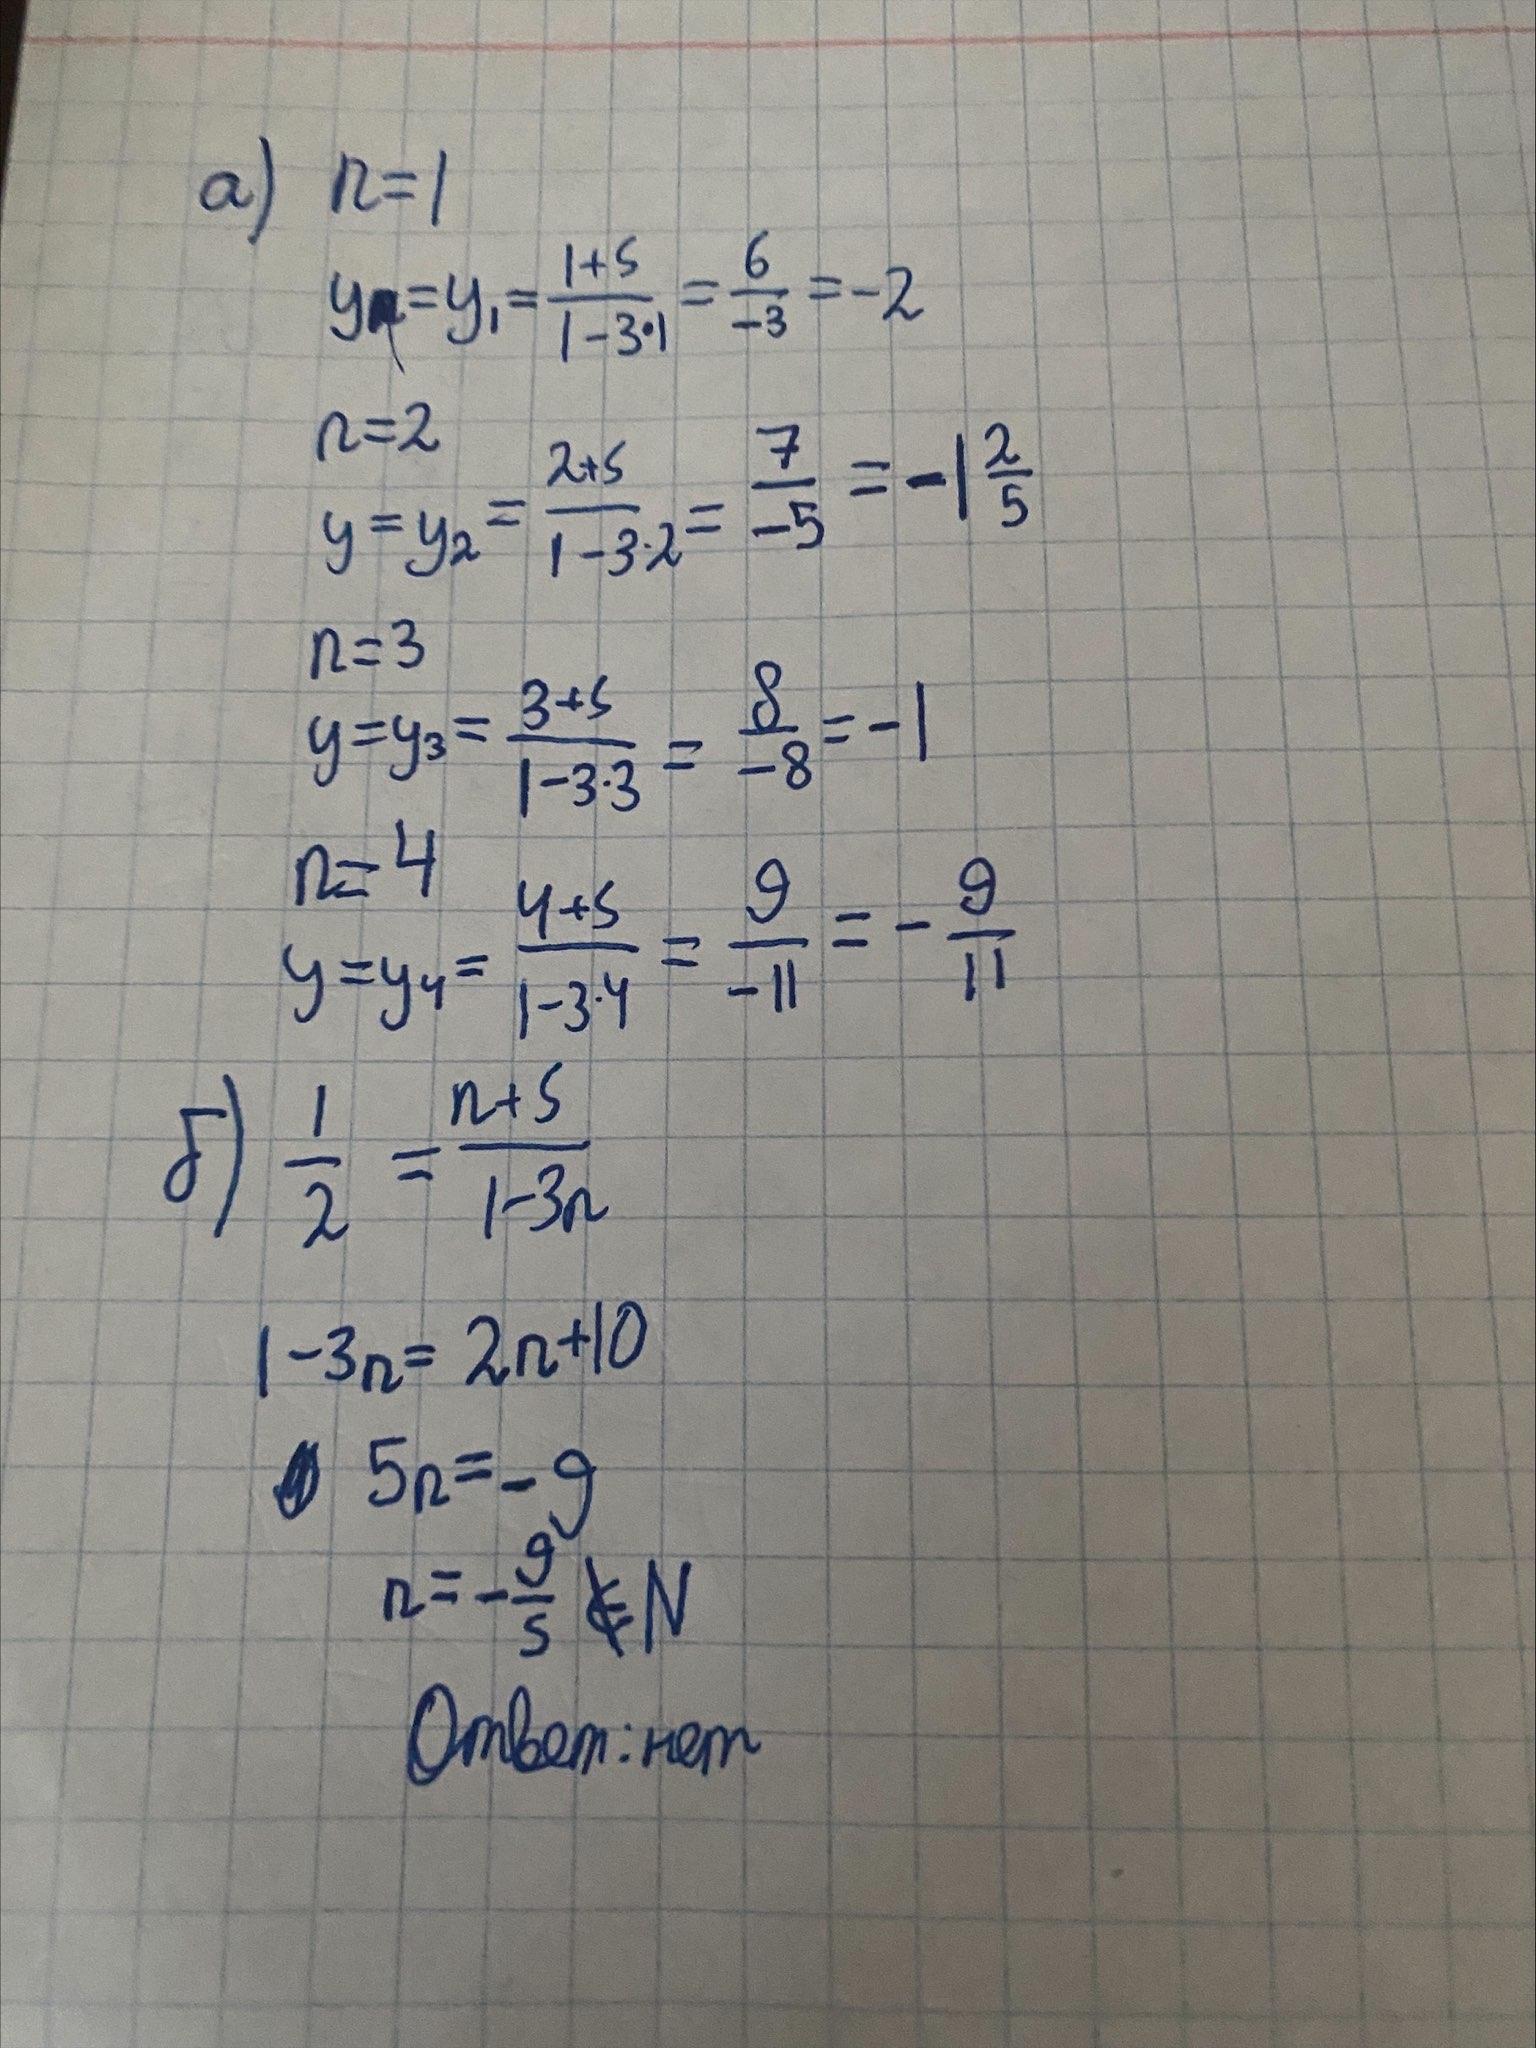 а) n=1
y=y₁=(1+5)/(1-3·1)=6/-3=-2
n=2
y=y₂=(2+5)/(1-3·2)=7/-5=-1 2/5
n=3
y=y₃=(3+5)/(1-3·3)=8/-8=-1
n=4
y=y₄=(4+5)/(1-3·4)=9/-11=-9/11
б) 1/2=(n+5)/(1-3n)
1-3n=2n+10
5n=-9
n=-9/5∉N
Ответ: нет